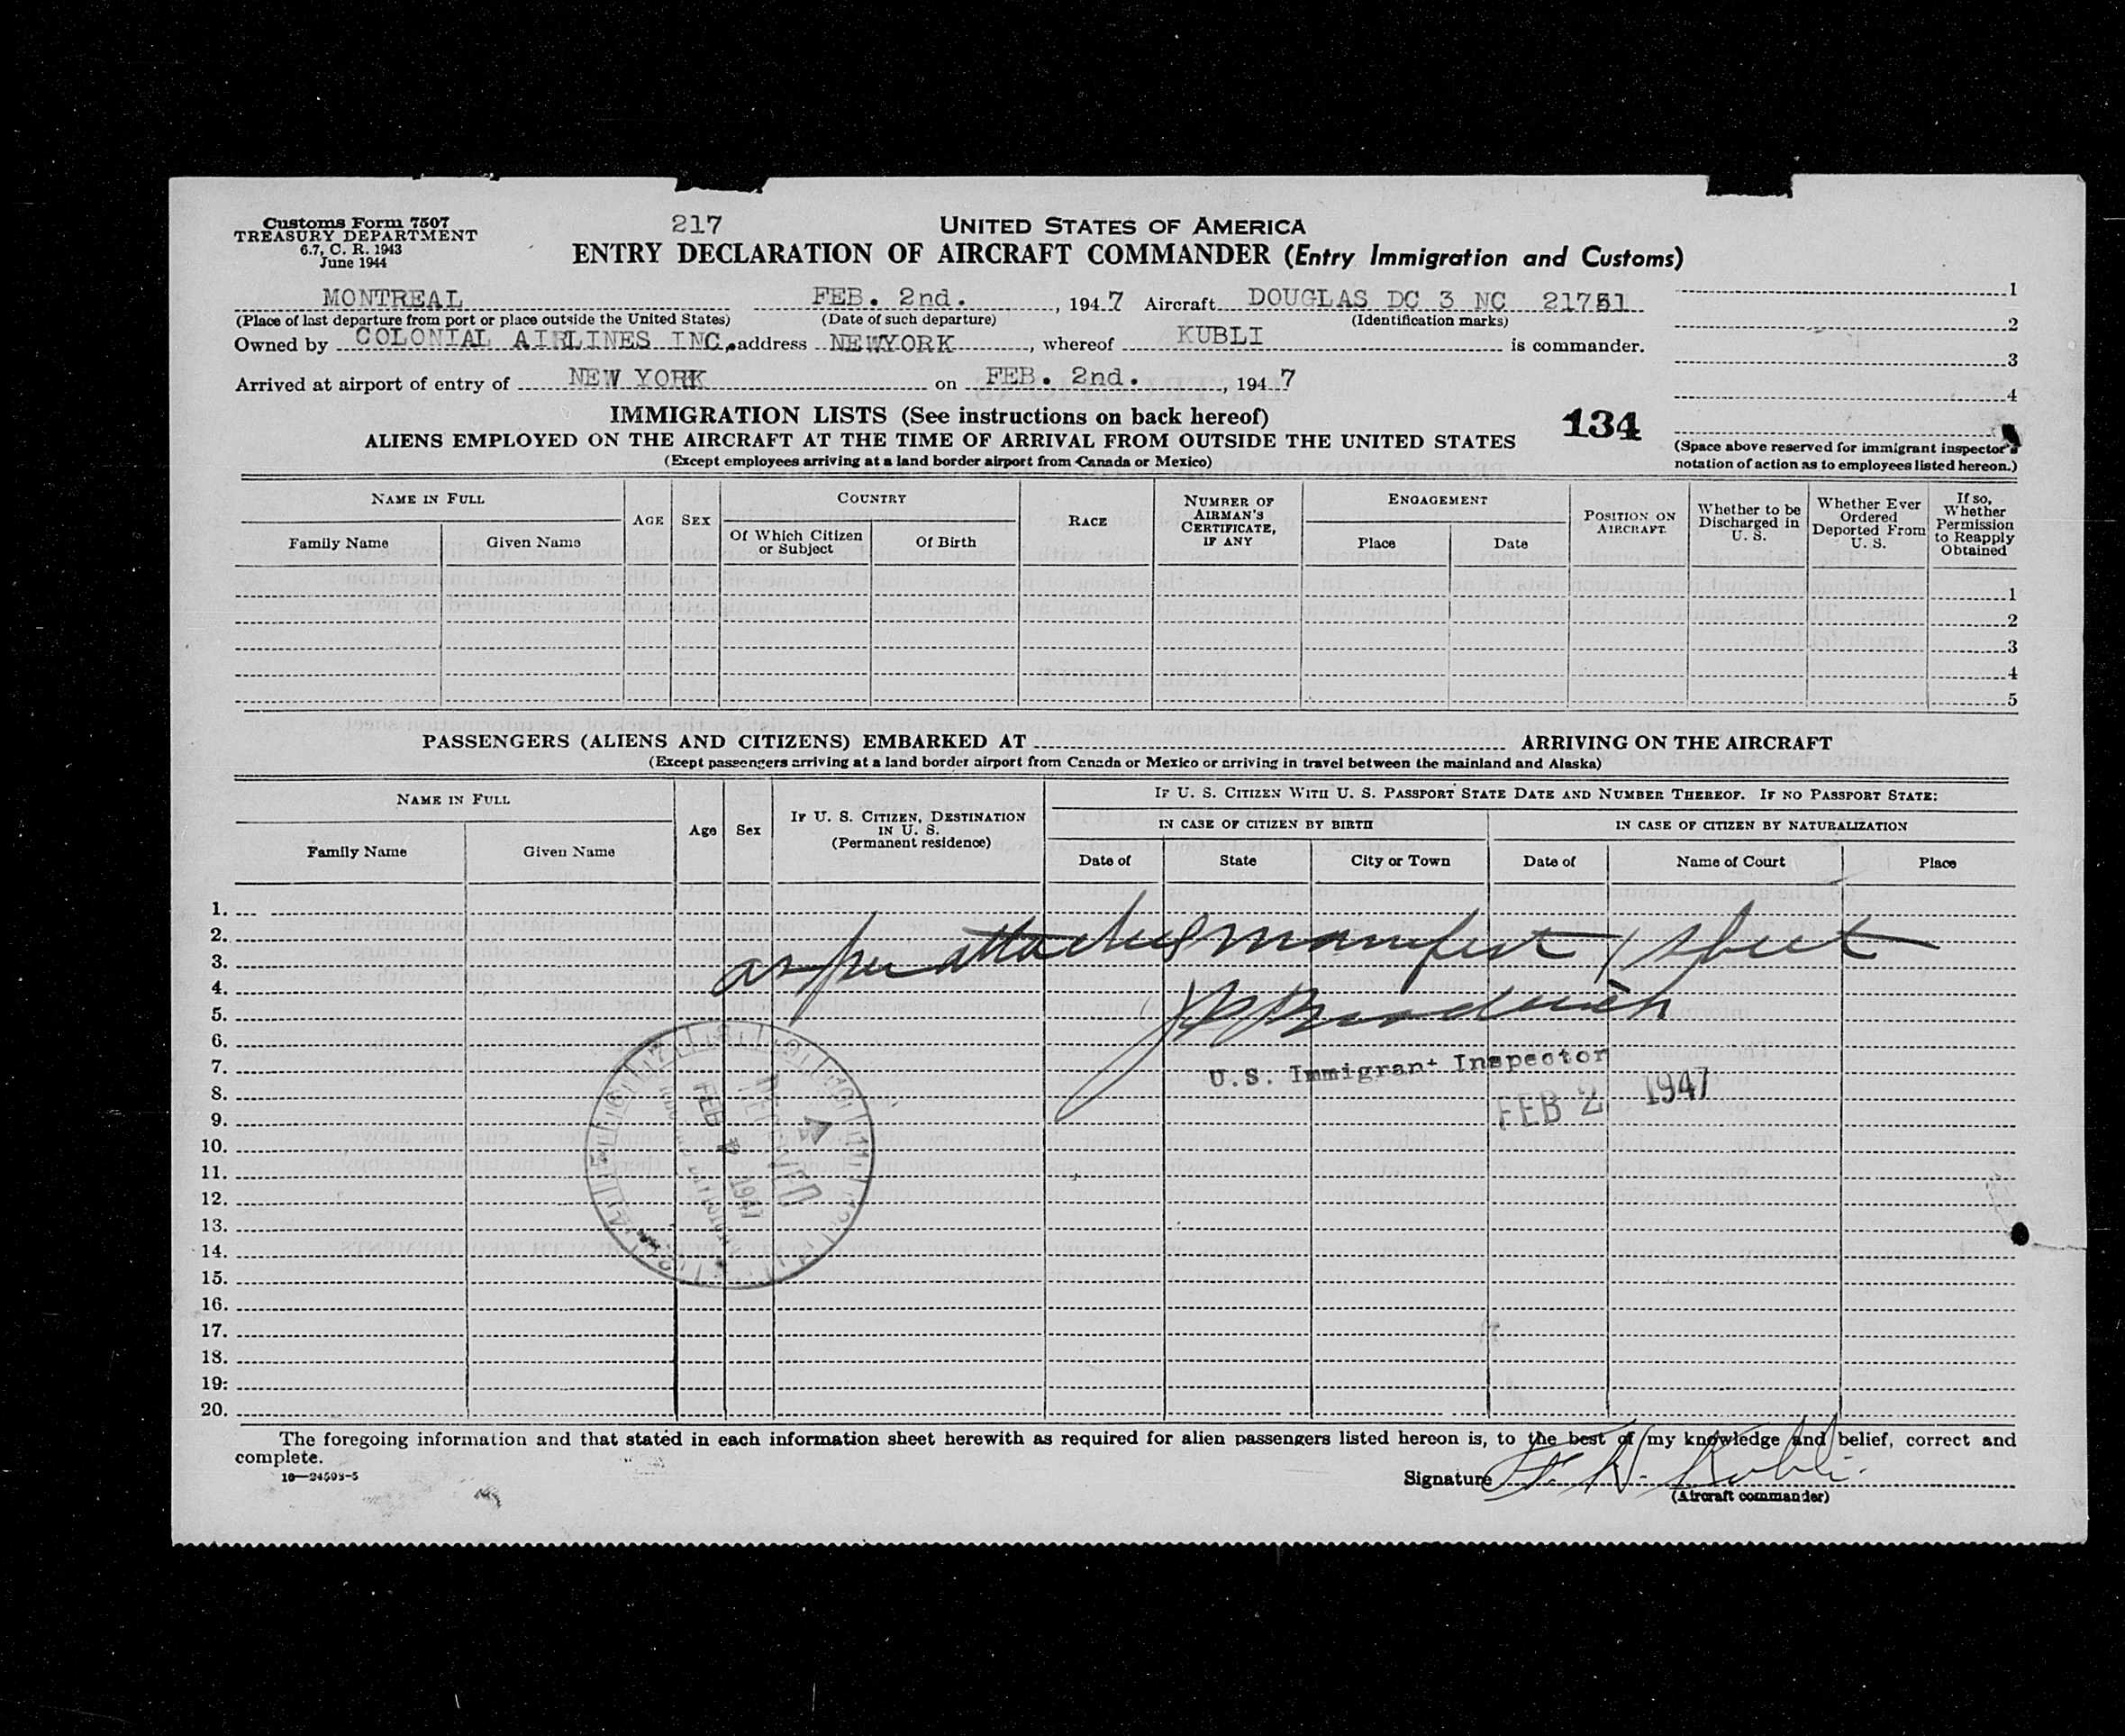 Customs Form 7507
TREASURY DEPARTMENT
6.7, C. R. 1943
June 1944
217
UNITED STATES OF AMERICA
ENTRY DECLARATION OF AIRCRAFT COMMANDER (Entry Immigration and Customs)
MONTREAL FEB. 2nd. , 1947 Aircraft DOUGLAS DC 3 NC 21751
(Place of last departure from port or place outside the United States) (Date of such departure) (Identification marks)
Owned by COLONIAL AIRLINES INC, address NEWYORK , whereof KUBLI is commander.
Arrived at airport of entry of NEW YORK on FEB. 2nd. , 1947
1
2
3
4
IMMIGRATION LISTS (See instructions on back hereof)
134
ALIENS EMPLOYED ON THE AIRCRAFT AT THE TIME OF ARRIVAL FROM OUTSIDE THE UNITED STATES
(Except employees arriving at a land border airport from Canada or Mexico)
(Space above reserved for immigrant inspector's
notation of action as to employees listed hereon.)
NAME IN FULL
Family Name Given Name
AGE SEX
COUNTRY
Of Which Citizen
or Subject
Of Birth
RACE
NUMBER OF
AIRMAN'S
CERTIFICATE,
IF ANY
ENGAGEMENT
Place Date
POSITION ON
AIRCRAFT
Whether to be
Discharged in
U. S.
Whether Ever
Ordered
Deported From
U. S.
If so,
Whether
Permission
to Reapply
Obtained
1
2
3
4
5
PASSENGERS (ALIENS AND CITIZENS) EMBARKED AT ARRIVING ON THE AIRCRAFT
(Except passengers arriving at a land border airport from Canada or Mexico or arriving in travel between the mainland and Alaska)
NAME IN FULL
Family Name Given Name
Age Sex
IF U. S. CITIZEN, DESTINATION
IN U. S.
(Permanent residence)
IF U. S. CITIZEN WITH U. S. PASSPORT STATE DATE AND NUMBER THEREOF. IF NO PASSPORT STATE:
IN CASE OF CITIZEN BY BIRTH IN CASE OF CITIZEN BY NATURALIZATION
Date of State City or Town Date of Name of Court Place
1.
2.
3.
as per attached manifest 1 sheet
4.
5.
6.
7.
U.S. Immigrant Inspector
8.
FEB 2 1947
9.
10.
11.
12.
13.
14.
15.
16.
17.
18.
19.
20.
RECEIVED
FEB 1947
The foregoing information and that stated in each information sheet herewith as required for alien passengers listed hereon is, to the best of my knowledge and belief, correct and
complete.
16—24593-5
Signature F. H. Kubli
(Aircraft commander)